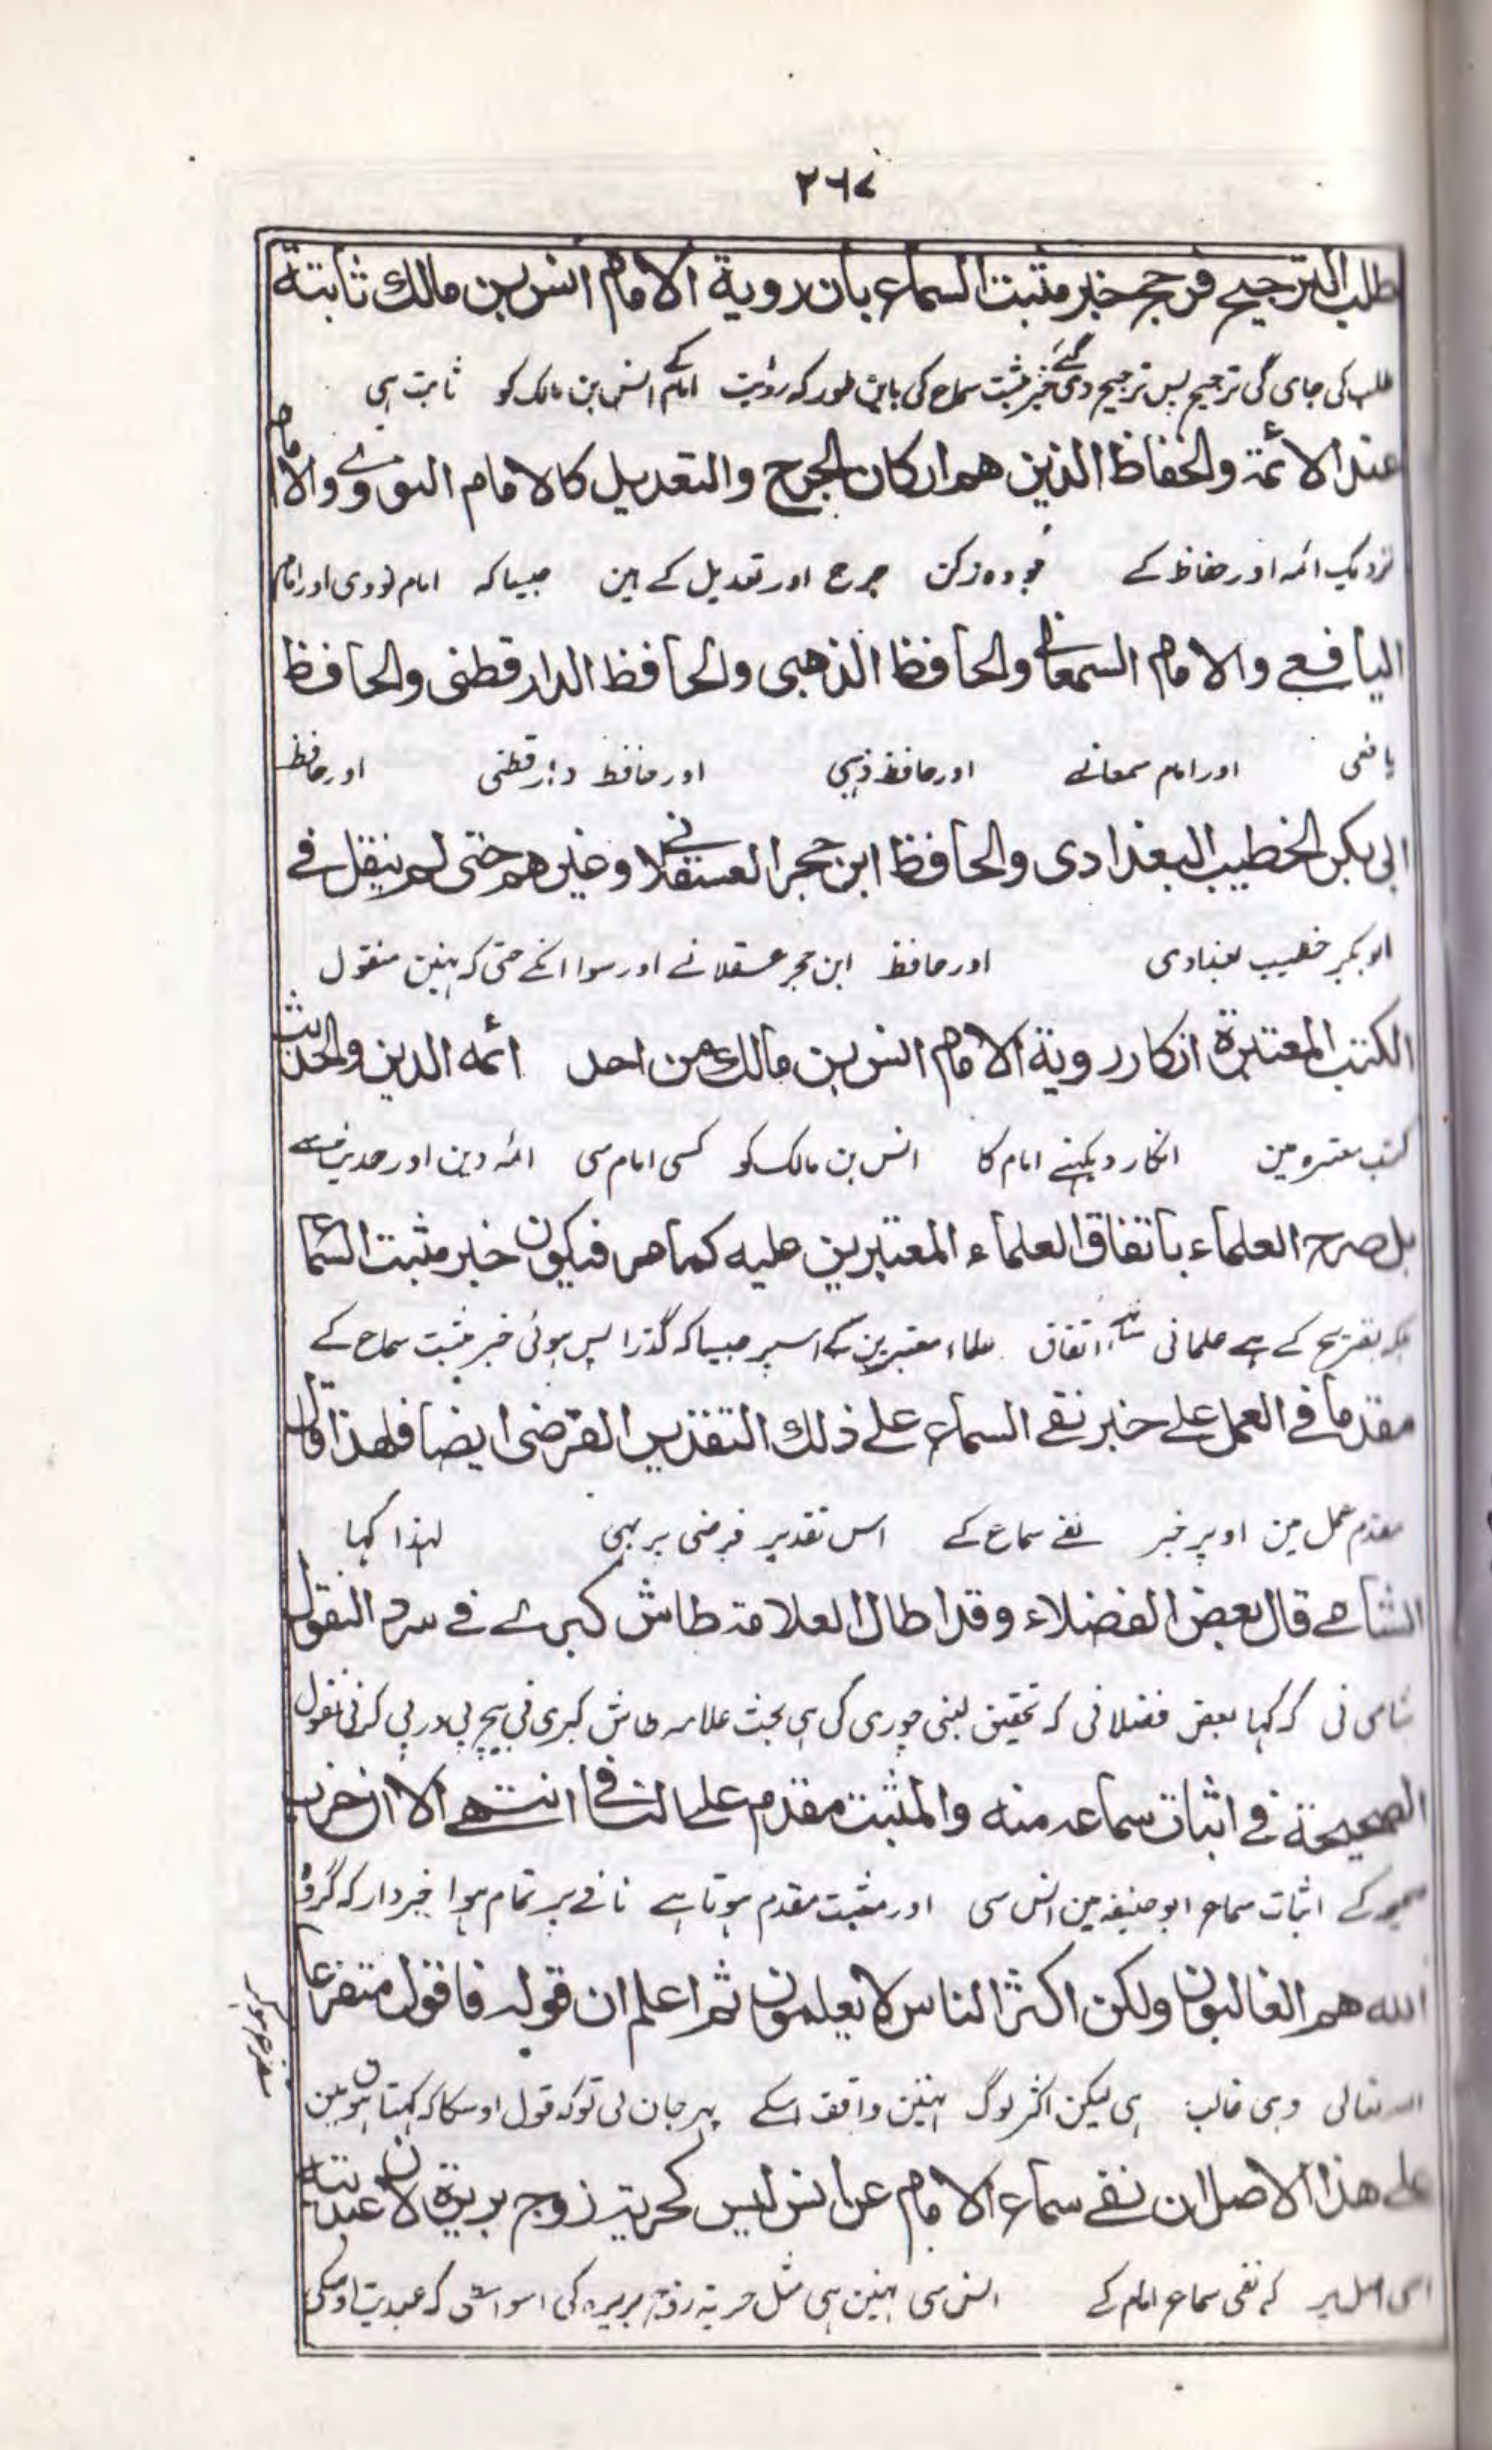 ٢٦٧
طلب الترجيح فرجح خبر مثبت السماع بان روية الامام انس بن مالك ثابتة
طلب کی جای گی ترجیح پس ترجیح دی گئے خبر مثبت سماع کی باین طور کہ رؤیت امام کے انس بن مالک کو ثابت ہی
عند الائمة والحفاظ الذين هم اركان الجرح والتعديل كالامام النووے والامام
نزدیک ائمہ اور حفاظ کے جو وہ رکن جرح اور تعدیل کے ہین جیسا کہ امام نووی اور امام
اليافعے والامام السمعانے والحافظ الذهبى والحافظ الدارقطنى والحافظ
یافعی اور امام سمعانے اور حافظ ذہبی اور حافظ دارقطنی اور حافظ
ابى بكر الخطيب البغدادى والحافظ ابن حجر العسقلانے وغيرهم حتى لم ينقل فے
ابو بکر خطیب بغدادی اور حافظ ابن حجر عسقلانے اور سوا انکے حتی کہ نہین منقول
الكتب المعتبرة انكار روية الامام انس بن مالك من احد ائمه الدين والحديث
کتب معتبرہ مین انکار دیکہنے امام کا انس بن مالک کو کسی امام سی ائمہ دین اور حدیث سے
بل صرح العلماء باتفاق العلماء المعتبرين عليه كما مر فيكون خبر مثبت السماع
بلکہ تصریح کے ہے علمانی ساتھ اتفاق علماء معتبرین کے اسپر جیسا کہ گذرا پس ہوئی خبر مثبت سماع کے
مقدما فے العمل علے خبر نفے السماع علے ذلك التقدير الفرضى ايضا فلهذا قال
مقدم عمل مین اوپر خبر نفے سماع کے اس تقدیر فرضی پر بہی لہذا کہا
الشامے قال بعض الفضلاء وقد اطال العلامة طاش كبرے فے سرد النقول
شامی نی کہ کہا بعض فضلانی کہ تحقیق لنبی چوری کی ہی بحث علامہ طاش کبری نی بیچ پی در پی کرنی نقول
الصحيحة فے اثبات سماعه منه والمثبت مقدم علے النافے انتهے الا ان حزب
صحیحہ کے اثبات سماع ابو حنیفہ مین انس سی اور مثبت مقدم ہوتا ہے نافے پر تمام ہوا خبردار کہ گروہ
الله هم الغالبون ولكن اكثر الناس لا يعلمون ثم اعلم ان قوله فاقول متفرعا
اللہ تعالی وہی غالب ہی لیکن اکثر لوگ نہین واقف اسکے پہر جان لی تو کہ قول اوسکا کہ کہتا ہون مین
متفرع ہو کر
علے هذا الاصل ان نفے سماع الامام عن انس ليس كحرية زوج بريرة لان عبديته
اسی اصل پر کہ نفی سماع امام کے انس سی نہین ہی مثل حریة زوج بریرہ کی اسواسطی کہ عبدیت اوسکی